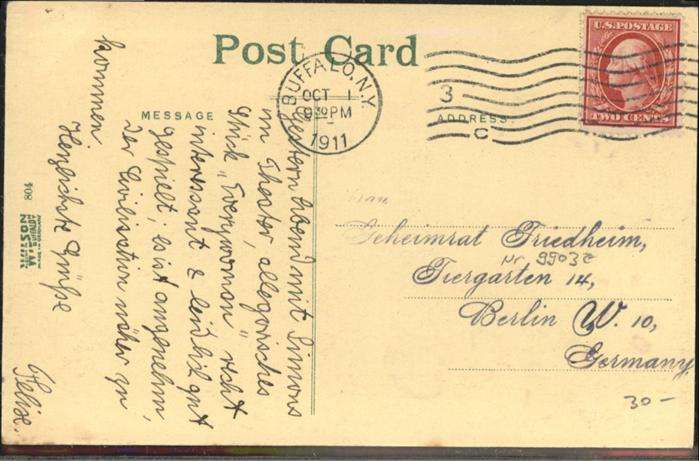 Post Card
MESSAGE
ADDRESS.
BUFFALO, N.Y.
OCT 1
9 30 PM
1911
3
C
U.S. POSTAGE
TWO CENTS
Gestern Abend mit Simons
im Theater, allegorisches
Stück „Everywoman" recht
interessant & leidlich gut
gespielt; ist angenehm,
der Civilisation näher zu
kommen.
Herzlichste Grüße
Felix.
Geheimrat Friedheim,
Nr. 9903z
Tiergarten 14,
Berlin W. 10,
Germany
30-
804
WILSON
BUFFALO